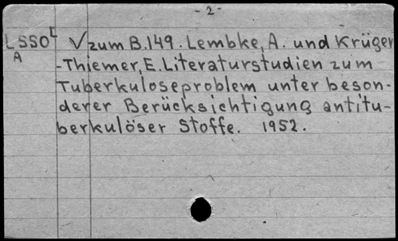 - 2 -
LSSO^L √zum B.149. Lembke, A. und Krüger
A -Thiemer, E. Literaturstudien zum
Tuberkuloseproblem unter beson-
derer Berücksichtigung antitu-
berkulöser Stoffe. 1952.